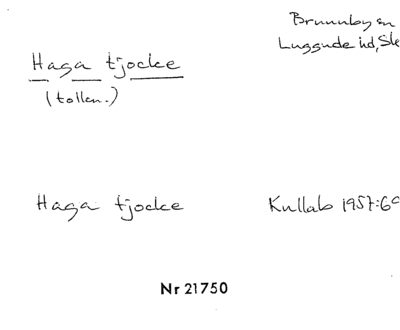 Brunnby sn
Luggude hd, Sk
Haga tjocke
(tollen.)
Haga tjocke
Kullab 1957:60
Nr 21750